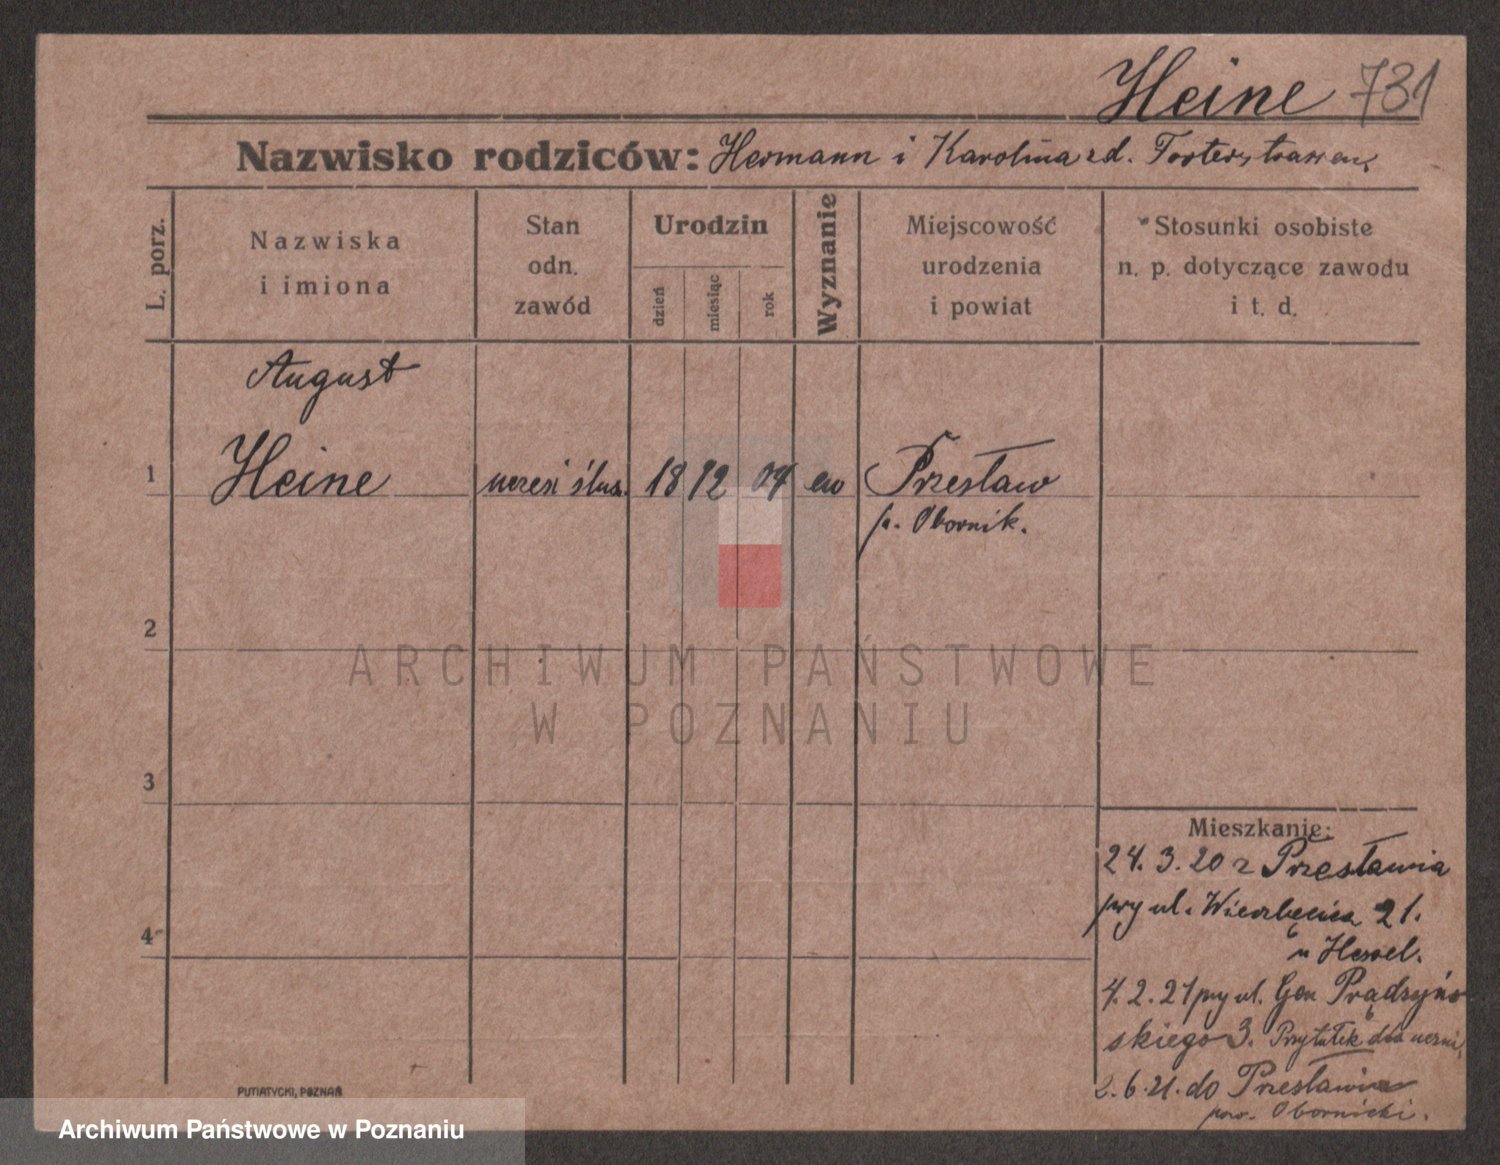 Heine 731
Nazwisko rodziców: Hermann i Karolina zd.
L. porz.
Nazwiska
i imiona
Stan
odn.
zawód
Urodzin
dzień
miesiąc
rok
Wyznanie
Miejscowość
urodzenia
i powiat
Stosunki osobiste
n. p. dotyczące zawodu
i t. d.
August
1 Heine uczeń ślus. 18 12 04 ew Przesław
p. Obornik.
2
3
4
Mieszkanie:
24.3.20 z Przesławia
przy ul. Wierzbięcice 21.
u Hessel.
4.2.21 przy ul. Gen Prądzyńs
skiego 3. Przytułek dla uczni,
2.6.21. do Przesławia
pow. Obornicki.
PUTIATYCKI, POZNAŃ
ARCHIWUM PAŃSTWOWE
W POZNANIU
Archiwum Państwowe w Poznaniu